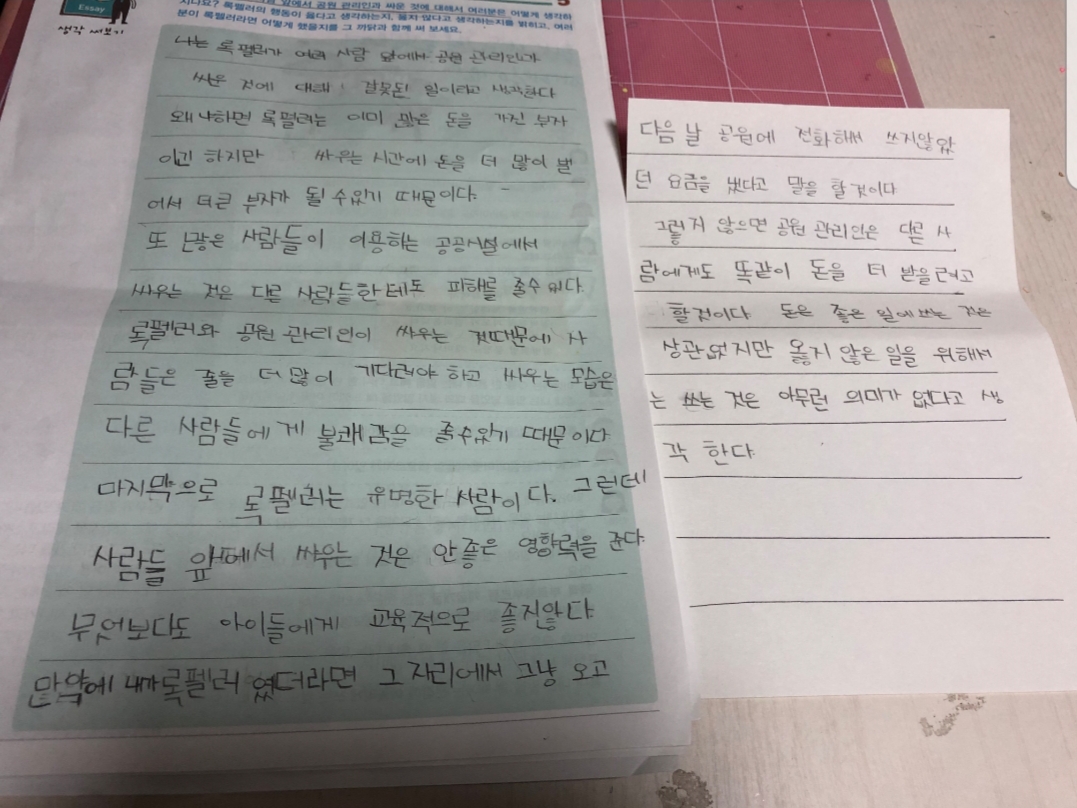 Essay
생각 써보기
앞에서 공원 관리인과 싸운 것에 대해서 여러분은 어떻게 생각하
시나요? 록펠러의 행동이 옳다고 생각하는지, 옳지 않다고 생각하는지를 밝히고, 여러
분이 록펠러라면 어떻게 했을지를 그 까닭과 함께 써 보세요.
나는 록펠러가 여러 사람 앞에서 공원 관리인과
싸운 것에 대해 잘못된 일이라고 생각한다
왜냐하면 록펠러는 이미 많은 돈을 가진 부자
이긴 하지만 싸우는 시간에 돈을 더 많이 벌
어서 더 큰 부자가 될 수 있기 때문이다.
또 많은 사람들이 이용하는 공공시설에서
싸우는 것은 다른 사람들한테도 피해를 줄수 있다
록펠러와 공원 관리인이 싸우는 것때문에 사
람들은 줄을 더 많이 기다려야 하고 싸우는 모습은
다른 사람들에게 불쾌감을 줄수있기 때문이다
마지막으로 록펠러는 유명한 사람이다. 그런데
사람들 앞에서 싸우는 것은 안좋은 영향력을 준다.
무엇보다도 아이들에게 교육적으로 좋지않다
만약에 내가 록펠러 였더라면 그 자리에서 그냥 오고
다음날 공원에 전화해서 쓰지않았
던 요금을 냈다고 말을 할것이다
그렇지 않으면 공원 관리인은 다른 사
람에게도 똑같이 돈을 더 받을려고
할것이다 돈은 좋은 일에 쓰는 것은
상관없지만 옳지 않은 일을 위해서
는 쓰는 것은 아무런 의미가 없다고 생
각 한다